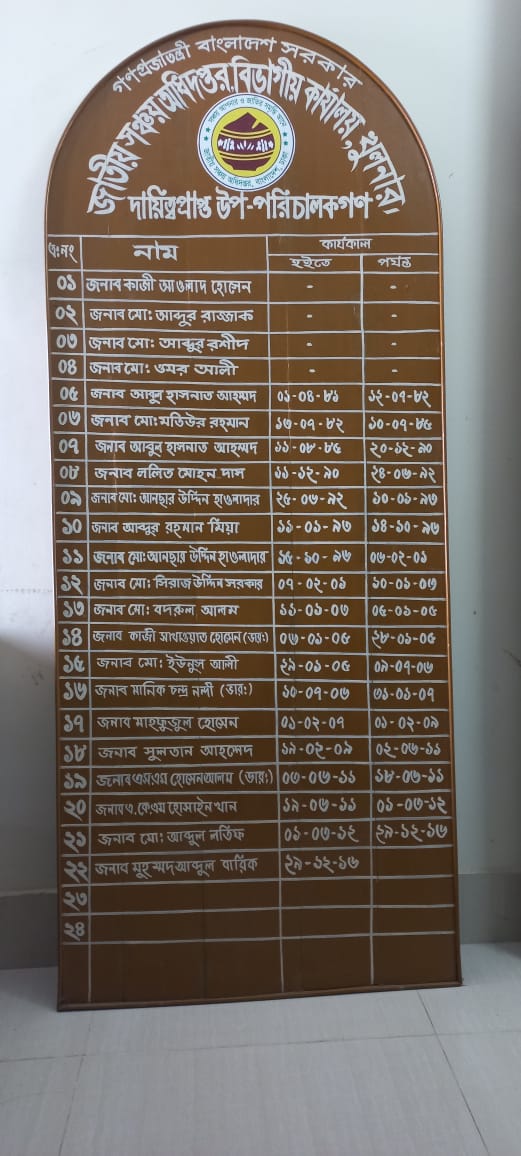 গণপ্রজাতন্ত্রী বাংলাদেশ সরকার
জাতীয় সঞ্চয় অধিদপ্তর, বিভাগীয় কার্যালয়, খুলনার।
সঞ্চয় আপনার ও জাতির সমৃদ্ধি আনে
জাতীয় সঞ্চয় অধিদপ্তর, বাংলাদেশ, ঢাকা
দায়িত্বপ্রাপ্ত উপ-পরিচালকগণ
ক্র:নং নাম কার্যকাল
হইতে পর্যন্ত
০১ জনাব কাজী আওলাদ হোসেন - -
০২ জনাব মো: আব্দুর রাজ্জাক - -
০৩ জনাব মো: আব্দুর রশীদ - -
০৪ জনাব মো: ওমর আলী - -
০৫ জনাব আবুল হাসনাত আহম্মদ ০১-০৪-৮১ ১২-০৭-৮২
০৬ জনাব মো:মতিউর রহমান ১৩-০৭-৮২ ১০-০৭-৮৫
০৭ জনাব আবুল হাসনাত আহম্মদ ১১-০৮-৮৫ ২০-১২-৯০
০৮ জনাব ললিত মোহন দাস ১১-১২-৯০ ২৪-০৬-৯২
০৯ জনাব মো: আনছার উদ্দিন হাওলাদার ২৫-০৬-৯২ ১০-০১-৯৩
১০ জনাব আব্দুর রহমান মিয়া ১১-০১-৯৩ ১৪-১০-৯৬
১১ জনাব মো:আনছার উদ্দিন হাওলাদার ১৫-১০-৯৬ ০৬-০২-০১
১২ জনাব মো: সিরাজ উদ্দিন সরকার ০৭-০২-০১ ১০-০১-০৩
১৩ জনাব মো: বদরুল আলম ১১-০১-০৩ ০৫-০১-০৫
১৪ জনাব কাজী সাখাওয়াত হোসেন (ভার:) ০৬-০১-০৫ ২৮-০১-০৫
১৫ জনাব মো: ইউনুস আলী ২৯-০১-০৫ ০৯-০৭-০৬
১৬ জনাব মানিক চন্দ্র নন্দী (ভার:) ১০-০৭-০৬ ৩১-০১-০৭
১৭ জনাব মাহফুজুল হোসেন ০১-০২-০৭ ০১-০২-০৯
১৮ জনাব সুলতান আহমেদ ১৯-০২-০৯ ০২-০৬-১১
১৯ জনাব এস.এম হোসেন আলম (ভার:) ০৩-০৬-১১ ১৮-০৬-১১
২০ জনাব এ.কে.এম হোসাইন খান ১৯-০৬-১১ ০১-০৩-১২
২১ জনাব মো: আব্দুল লতিফ ০১-০৩-১২ ২৯-১২-১৬
২২ জনাব মুহম্মদ আব্দুল বারিক ২৯-১২-১৬
২৩
২৪